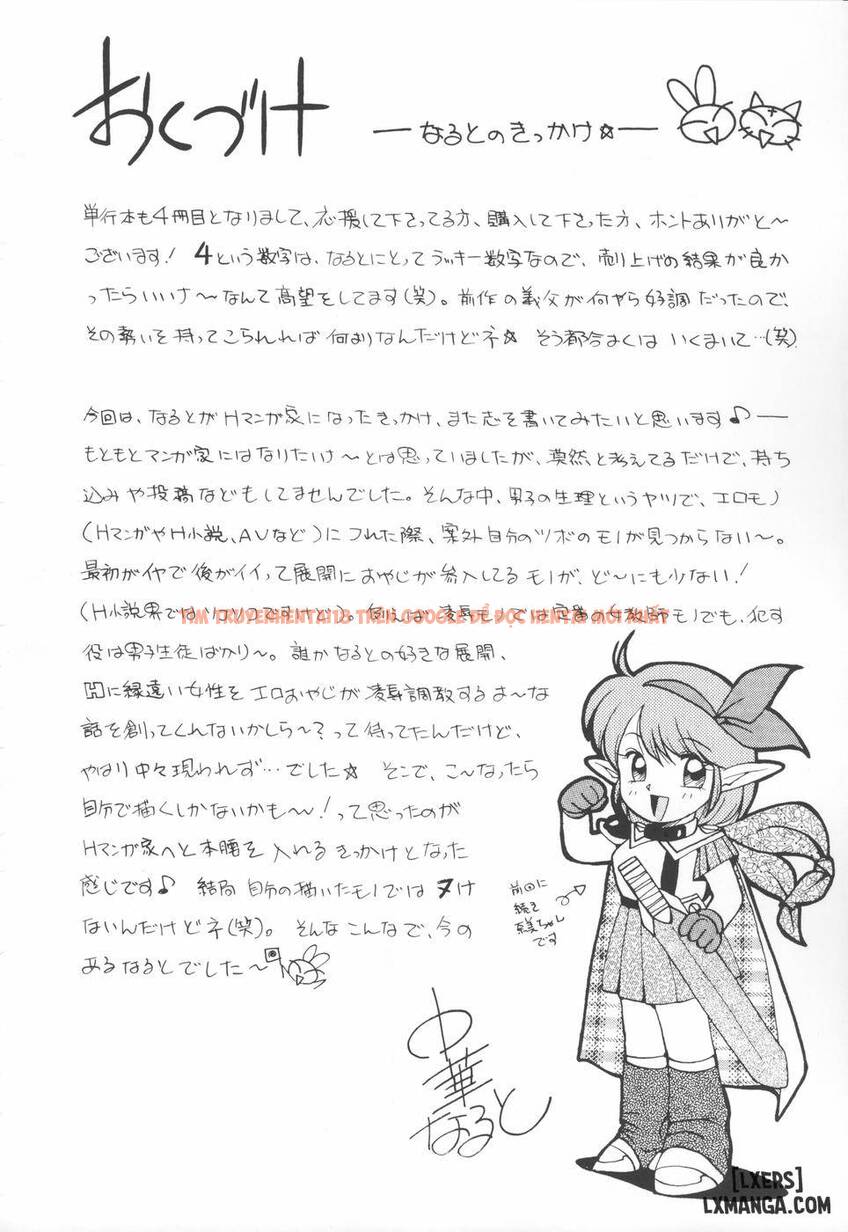 おくづけ
―なるとのきっかけ☆―
単行本も4冊目となりまして、応援して下さってる方、購入して下さった方、ホントありがと〜
ございます! 4という数字は、なるとにとってラッキー数字なので、刷り上げの結果が良か
ったらいいナ〜なんて高望をしてます(笑)。前作の義父が何やら好調だったので、
その勢いを持ってこられれば何よりなんだけどネ☆ そう都合よくは いくまいて…(笑)
今回は、なるとがHマンガ家になったきっかけ、また志を書いてみたいと思います♪――
もともとマンガ家にはなりたいナ〜とは思っていましたが、漠然と考えてるだけで、持ち
込みや投稿などもしてませんでした。そんな中、男子の生理というヤツで、エロモノ
(HマンガやH小説、AVなど)にフれた際、案外自分のツボのモノが見つからない〜。
最初がイヤで後がイイって展開におやじが参入してるモノが、ど〜にも少ない!
(H小説界では
TÌM TRUYENHENTAI18 TRÊN GOOGLE ĐỂ ĐỌC HENTAI MỚI NHẤT
女教師モノでも、犯す
役は男子生徒ばかり〜。誰かなるとの好きな展開、
Hに縁遠い女性をエロおやじが凌辱調教するよ〜な
話を創ってくんないかしら〜?って待ってたんだけど、
やはり中々現われず…でした☆ そこで、こ〜なったら
自分で描くしかないかも〜!って思ったのが
Hマンガ家へと本腰を入れるきっかけとなった
感じです♪ 結局自分の描いたモノではヌけ
ないんだけどネ(笑)。そんなこんなで、今の
あるなるとでした〜
前回に
続き
ちゃん
です
中華
なると
[LXERS]
LXMANGA.COM